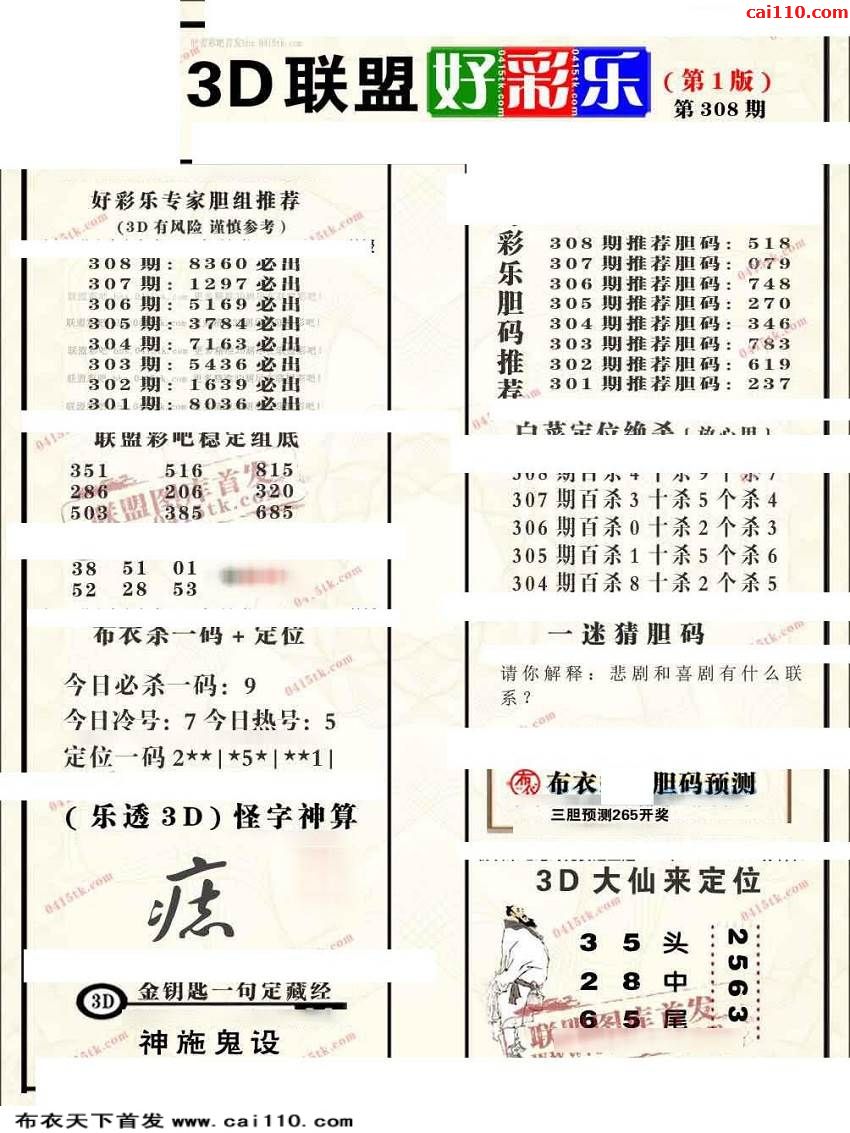 cai110.com
3D联盟好彩乐
(第1版)
第308期
好彩乐专家胆组推荐
(3D有风险 谨慎参考)
308期:8360必出
307期:1297必出
306期:5169必出
305期:3784必出
304期:7163必出
303期:5436必出
302期:1639必出
301期:8036必出
联盟彩吧稳定组底
351 516 815
286 206 320
503 385 685
38 51 01
52 28 53
布衣杀一码+定位
今日必杀一码:9
今日冷号:7 今日热号:5
定位一码 2**|*5*|**1|
(乐透3D)怪字神算
痣
3D 金钥匙一句定藏经
神施鬼设
彩乐胆码推荐
308期推荐胆码:518
307期推荐胆码:079
306期推荐胆码:748
305期推荐胆码:270
304期推荐胆码:346
303期推荐胆码:783
302期推荐胆码:619
301期推荐胆码:237
白菜定位绝杀(放心用)
308期百杀4十杀9个杀7
307期百杀3十杀5个杀4
306期百杀0十杀2个杀3
305期百杀1十杀5个杀6
304期百杀8十杀2个杀5
一迷猜胆码
请你解释:悲剧和喜剧有什么联
系?
布衣 胆码预测
三胆预测265开奖
3D大仙来定位
3 5 头
2 8 中
6 5 尾
2563
联盟图库首发
0415tk.com
布衣天下首发 www.cai110.com